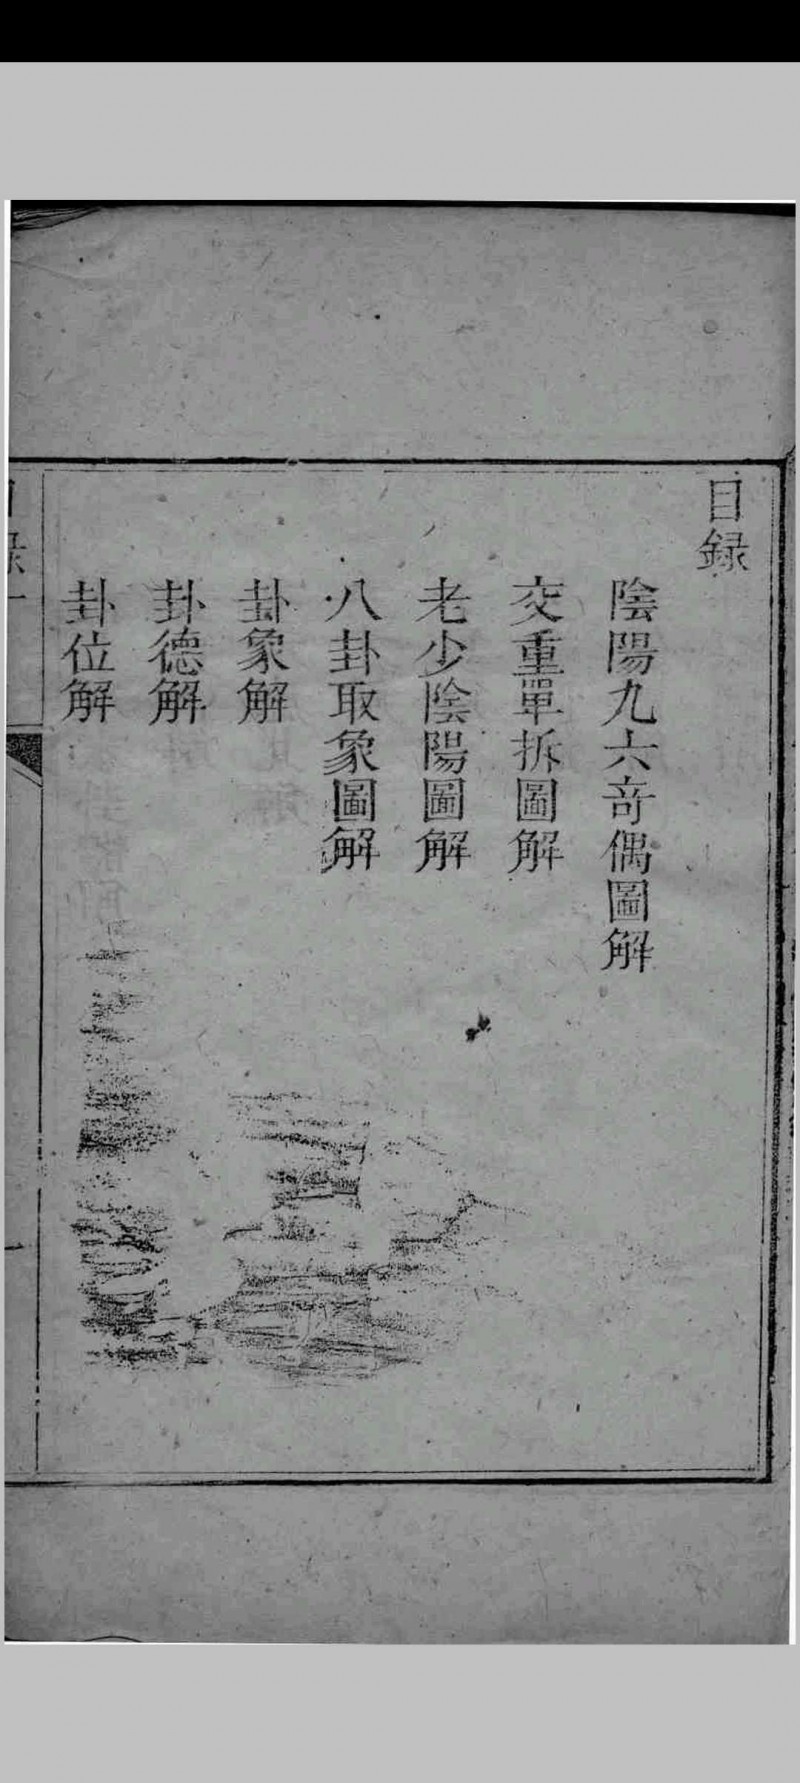 目録
陰陽九六奇偶圖解
交重單拆圖解
老少陰陽圖解
八卦取象圖解
卦象解
卦德解
卦位解
目録